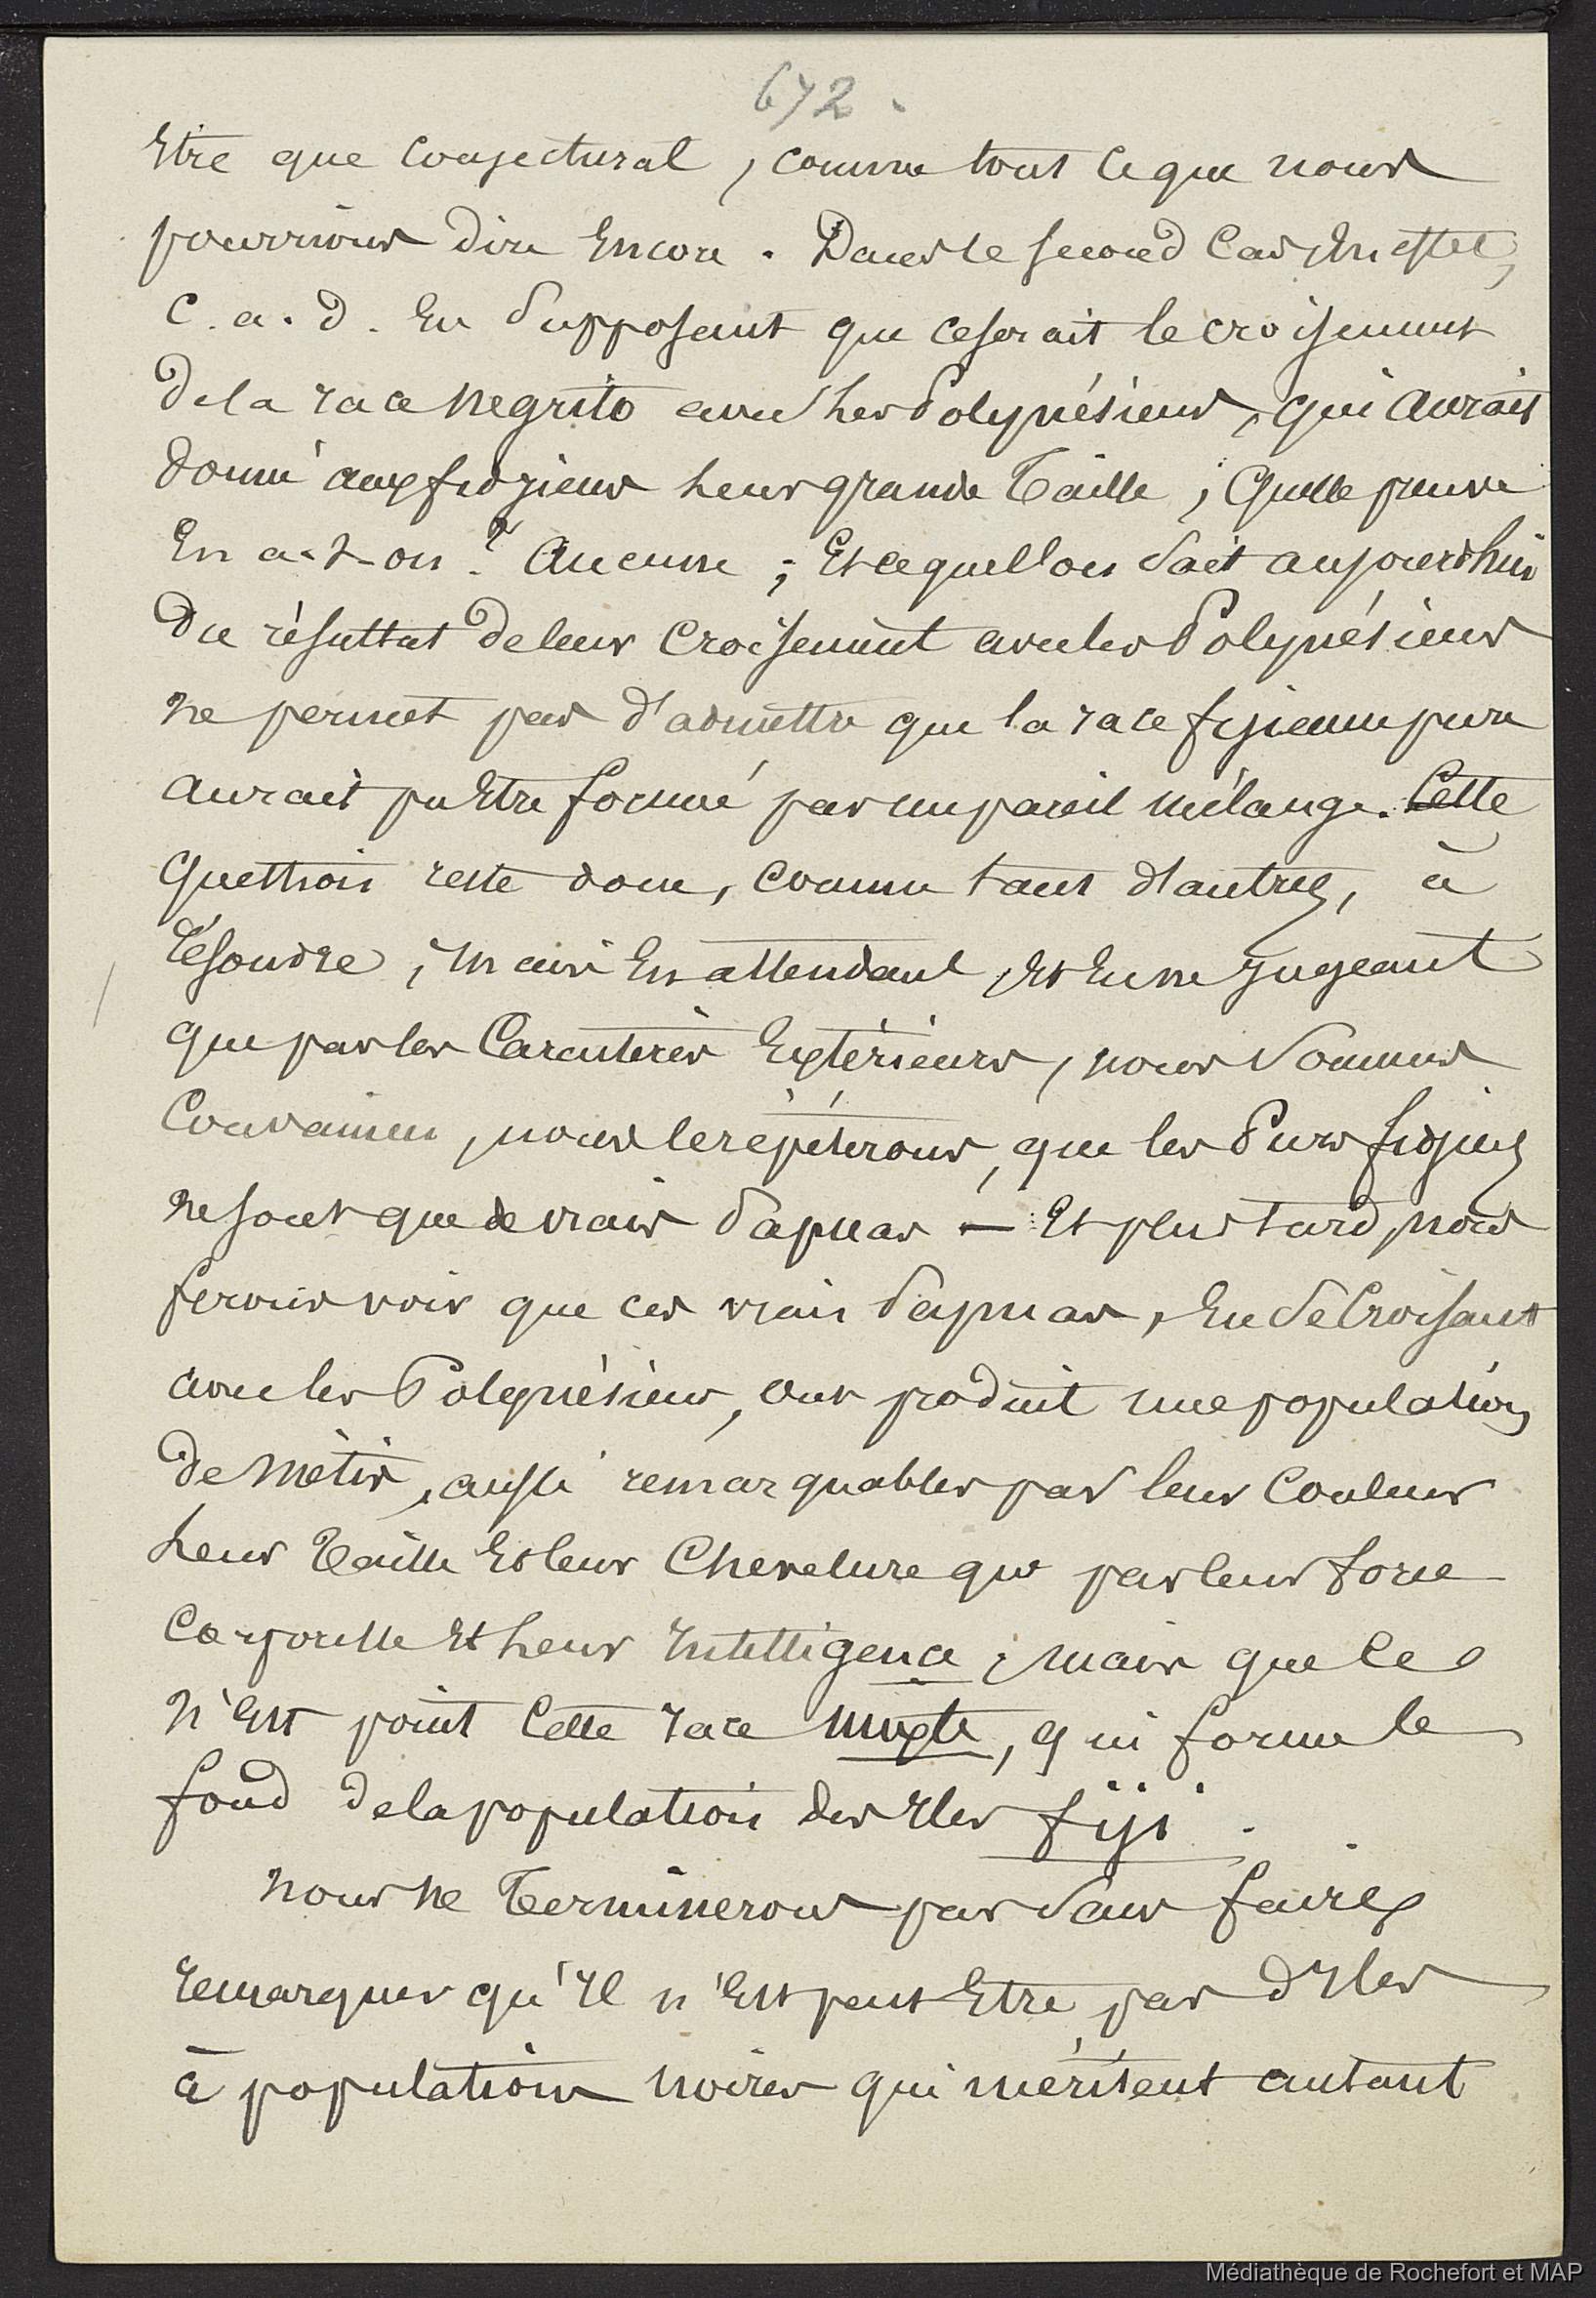 672.
Etre que conjectural, comme tout ce que nous
pourrions dire Encore. Dans le second cas En effet,
C. a. d. En supposant que ce serait le croisement
de la race Negrito avec les Polynésiens, qui aurait
donné aux fidgiens leur grande Taille, Quelle preuve
En a-t-on? Aucune; Et ce que l'on sait aujourd'hui
du résultat de leur Croisement avec les Polynésiens
ne permet pas d'admettre que la race fijienne pure
aurait pu Etre formé par un pareil mélange. Cette
Question reste donc, comme tant d'autres, à
résoudre; Mais En attendant, Et En ne jugeant
que par les Caractères Extérieurs, nous sommes
Convaincu, nous le répèterons, que les Purs fidgiens
ne sont que de vrais Papuas — Et plus tard, nous
ferons voir que ces vrais Papuas, En se Croisant
avec les Polynésiens, ont produit une population
de Métis, aussi remarquables par leur Couleur
leur Taille Et leur Chevelure que par leur force
Corporelle Et leur Intelligence; mais que ce
n'Est point Cette race mixte, qui forme le
fond de la population des Iles fiji.
Nous ne Terminerons pas sans faire
remarquer qu'Il n'Est peut Etre pas d'Iles
à populations noires qui méritent autant
Médiathèque de Rochefort et MAP